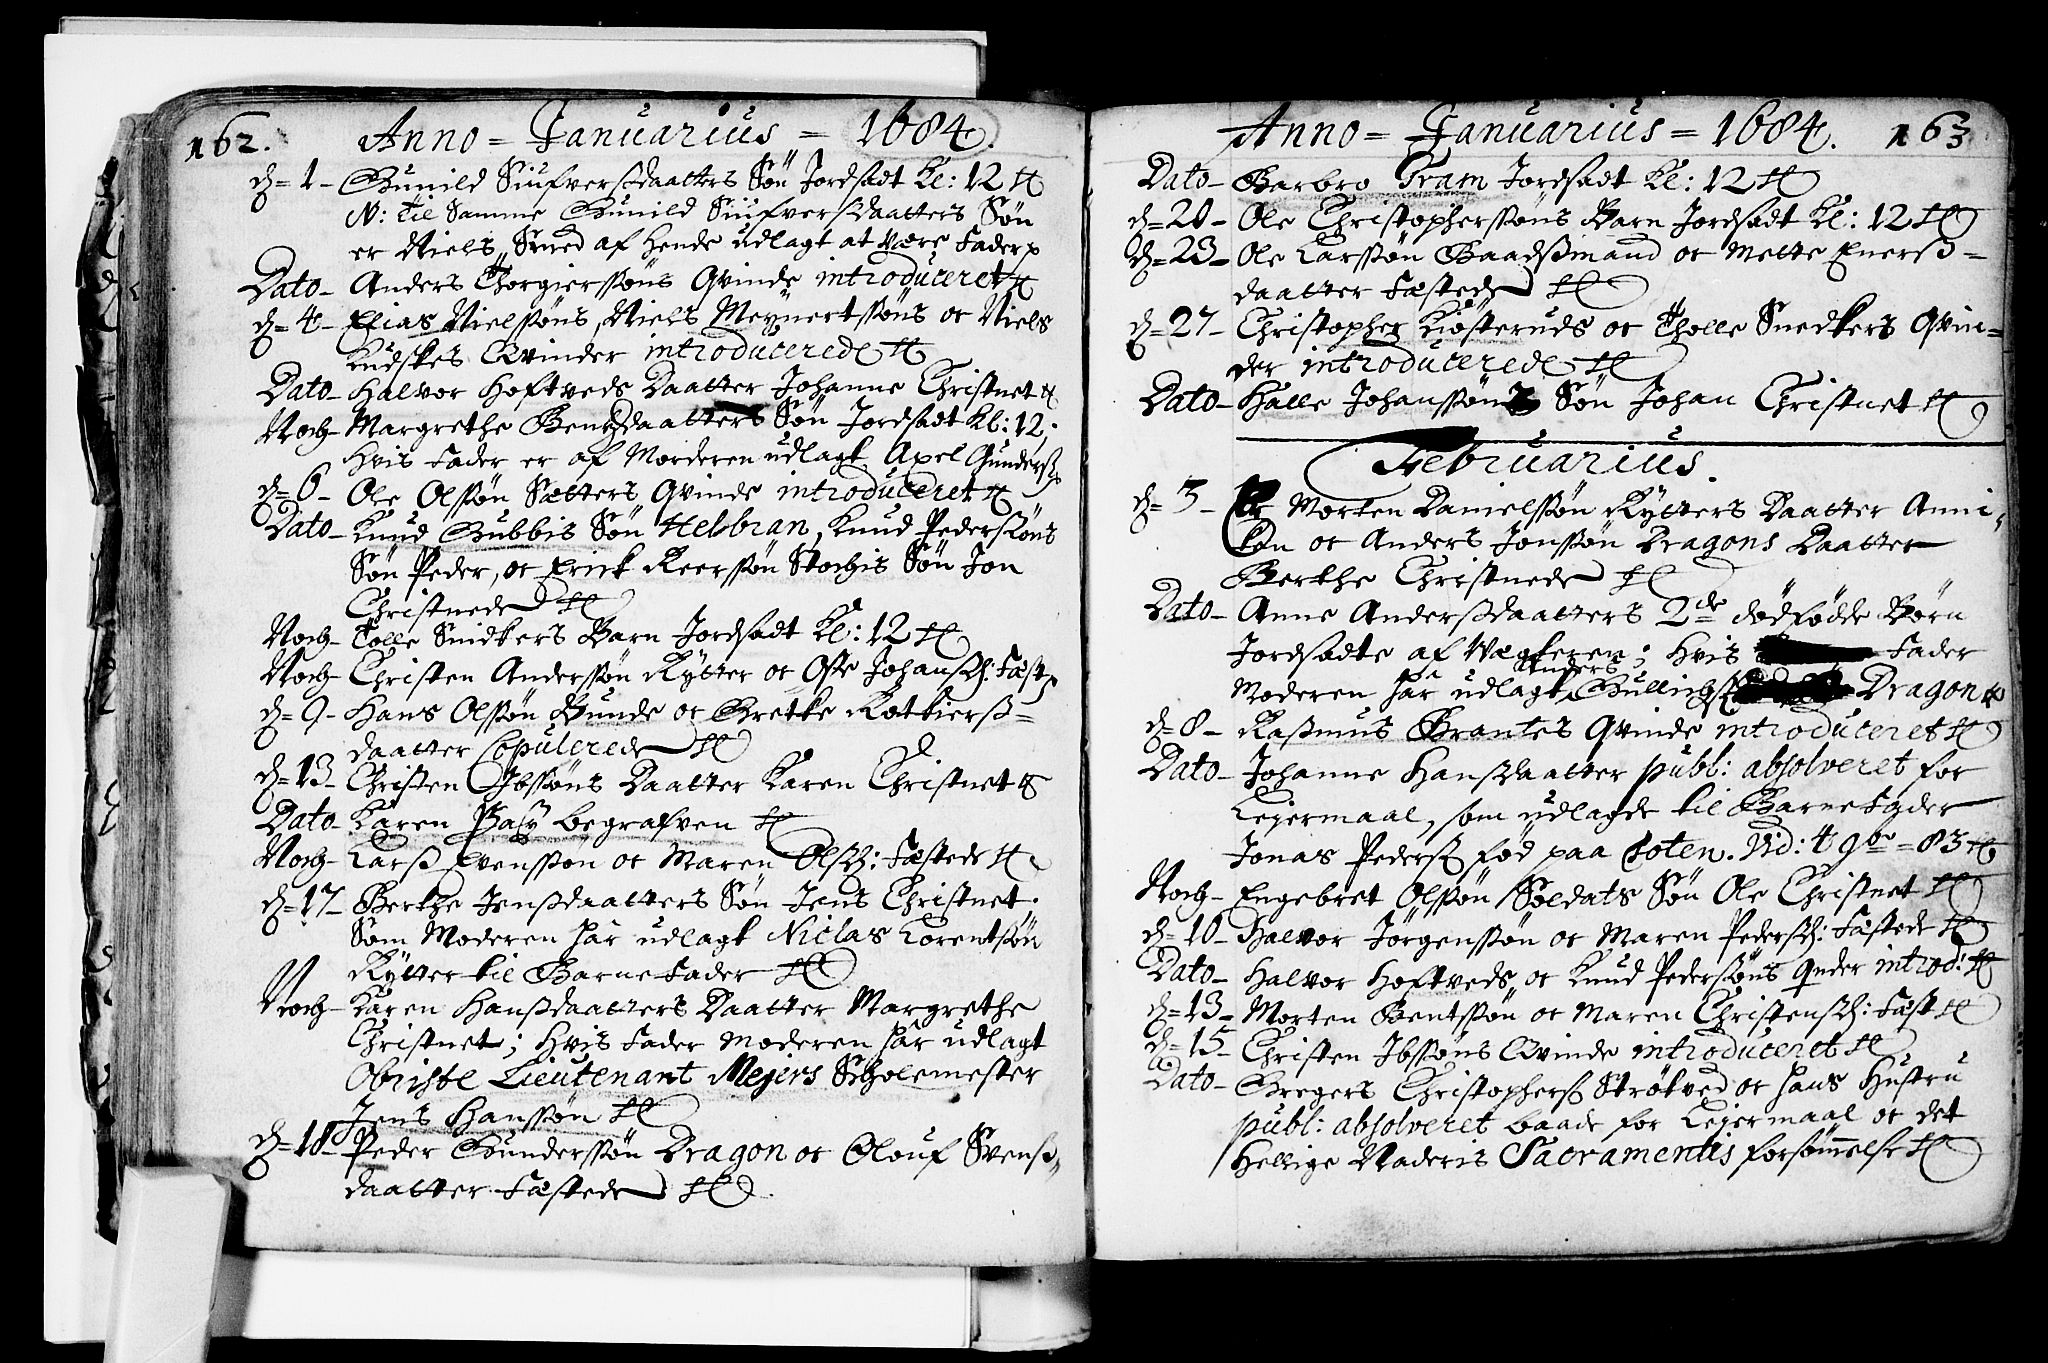 162. Anno = Januarius = 1684.
d = 1 - Gunild Siufversdaatters Søn Jordsadt Kl: 12
N: til Samme Gunild Siufversdaatters Søn
er Niels Smed af hende udlagt at være Fader
Dato - Anders Thorgierssøns Qvinde introduceret
d = 4 - Elias Nielssøns, Niels Meynertssøns oc Niels
Kudskes Qvinder introducerede
Dato - Halvor Hoftveds Daatter Johanne Christnet
Noch - Margrethe Bentzdaatters Søn Jordsadt Kl: 12;
Hvis Fader er af Moderen udlagt Axel Gunders.
d = 6 - Ole Olssøn Sætters Qvinde introduceret
Dato - Knud Gubbis Søn Helbran, Knud Pederssøns
Søn Peder, oc Erick Reerssøn Stochis Søn Jon
Christnede
Noch - Tolle Snidkers Barn Jordsadt Kl: 12
Noch - Christen Anderssøn Rytter oc Johansd: Fæst
d = 9 - Hans Olssøn Bunde oc Grethe
daatter Copulerede
d = 13 - Christen Ibssøns Daatter Karen Christnet
Dato - Karen begrafven
Noch - Larss Svenssøn oc Maren Olsd: Fæstede
d = 17 - Berthe Jenssdaatters Søn Jens Christnet.
Som Moderen har udlagt Niclas Lorentssøn
Rytter til BarneFader
Noch - Karen Hanssdaatters Daatter Margrethe
Christnet; Hvis Fader Moderen har udlagt
Obriste Lieutenant Mejers Scholemester
Jens Hanssøn
d = 18 - Peder Gunderssøn Dragon oc Olouf Svenss-
daatter Fæstede
Anno = Januarius = 1684. 163
Dato - Barbro Fram Jordsadt Kl: 12
d = 20 - Ole Christopherssøns Barn Jordsadt Kl: 12
d = 23 - Ole Larssøn Baadssmand oc Mette Enerss =
daatter Fæstede
d = 27 - Christopher Kiøsteruds oc Tholle Snedkers Qvin =
der introducerede
Dato - Halle Johanssøns Søn Johan Christnet
Februarius
d = 3 - Morten Danielssøn Rytters Daatter Anni-
ken oc Anders Jonssøn Dragons Daatter
Berthe Christnede
Dato - Anne Anderssdaatters 2de dødfødde Børn
Jordsadte af Vægteren; Hvis Fader
Anders
Moderen har udlagt Gullichs. Dragon
d = 8 - Rassmus Brantes Qvinde introduceret
Dato - Johanne Hanssdaatter publ: absolveret for
Lejermaal, som udlagde til BarneFader
Jonas Peders. fød paa Toten. Vid: 4 9br = 83
Noch - Engebret Olssøn Soldats Søn Ole Christnet
d = 10 - Halvor Jørgenssøn oc Maren Pedersd: Fæstede
Dato - Halvor Hoftveds, oc Knud Pederssøns Qvder introd:
d = 13 - Morten Bentssøn oc Maren Christensd: Fæst
d = 15 - Christen Ibssøns Qvinde introduceret
Dato - Gregers Christophers. Strøtved oc hans Hustru
publ: absolveret baade for Lejermaal oc det
Hellige Naderis Sacramentis forsømmelse